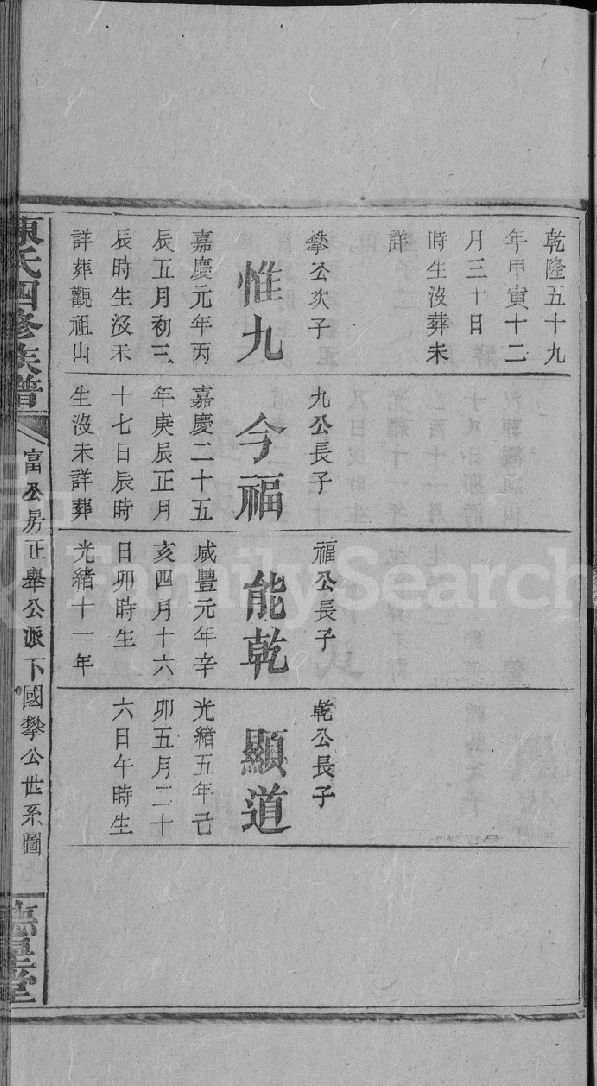 乾隆五十九
年甲寅十二
月三十日
時生沒葬未
詳
攀公次子
惟九
嘉慶元年丙
辰五月初三
辰時生沒未
詳葬觀祖山
九公長子
今福
嘉慶二十五
年庚辰正月
十七日辰時
生沒未詳葬
福公長子
能乾
咸豐元年辛
亥四月十六
日卯時生
光緒十一年
乾公長子
顯道
光緒五年己
卯五月二十
六日午時生
陳氏四修族譜
富公房正舉公派下國攀公世系圖
堂
FamilySearch